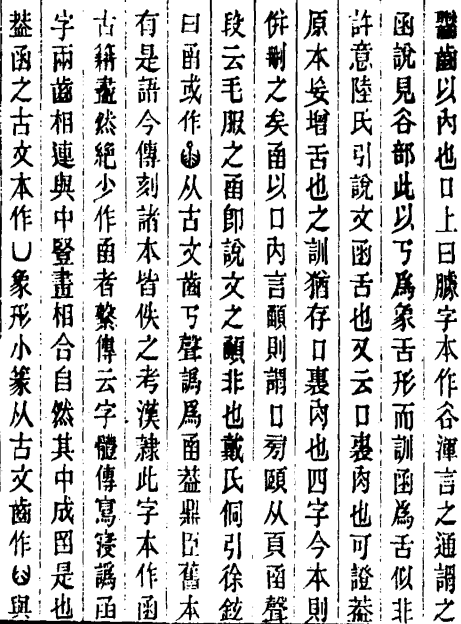 齒以內也口上曰臄字本作谷渾言之通謂之
函說見谷部此以丂爲象舌形而訓函爲舌似非
許意陸氏引說文函舌也又云口裏肉也可證葢
原本妄增舌也之訓猶存口裏肉也四字今本則
倂刪之矣圅以口內言顄則謂口旁頤从頁圅聲
段云毛服之圅卽說文之顄非也戴氏侗引徐鉉
曰圅或作从古文齒丂聲譌爲圅葢鼎臣舊本
有是語今傳刻諸本皆佚之考漢隸此字本作函
古籍盡然絕少作圅者繫傳云字體傳寫寖譌函
字兩齒相連與中豎畫相合自然其中成圅是也
葢函之古文本作凵象形小篆从古文齒作與